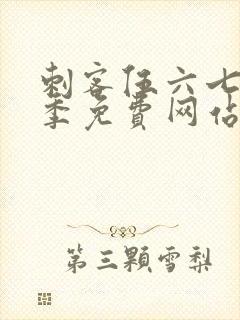 刺客伍六七
季免費网佔
第三顆雪梨